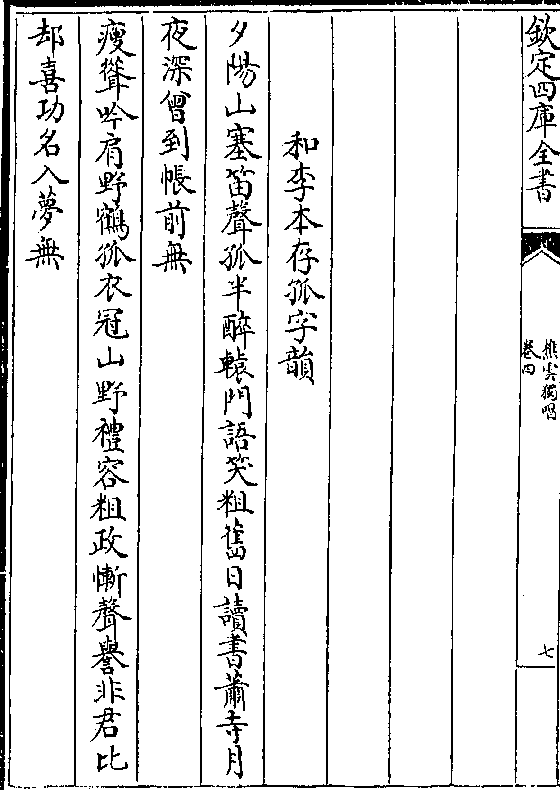 欽定四庫全書
樵雲獨唱
卷四
七
和李本存孤字韻
夕陽山塞笛聲孤半醉轅門語笑粗舊日讀書蕭寺月
夜深曾到帳前無
瘦聳吟肩野鶴孤衣冠山野禮容粗政慚聲譽非君比
却喜功名入夢無